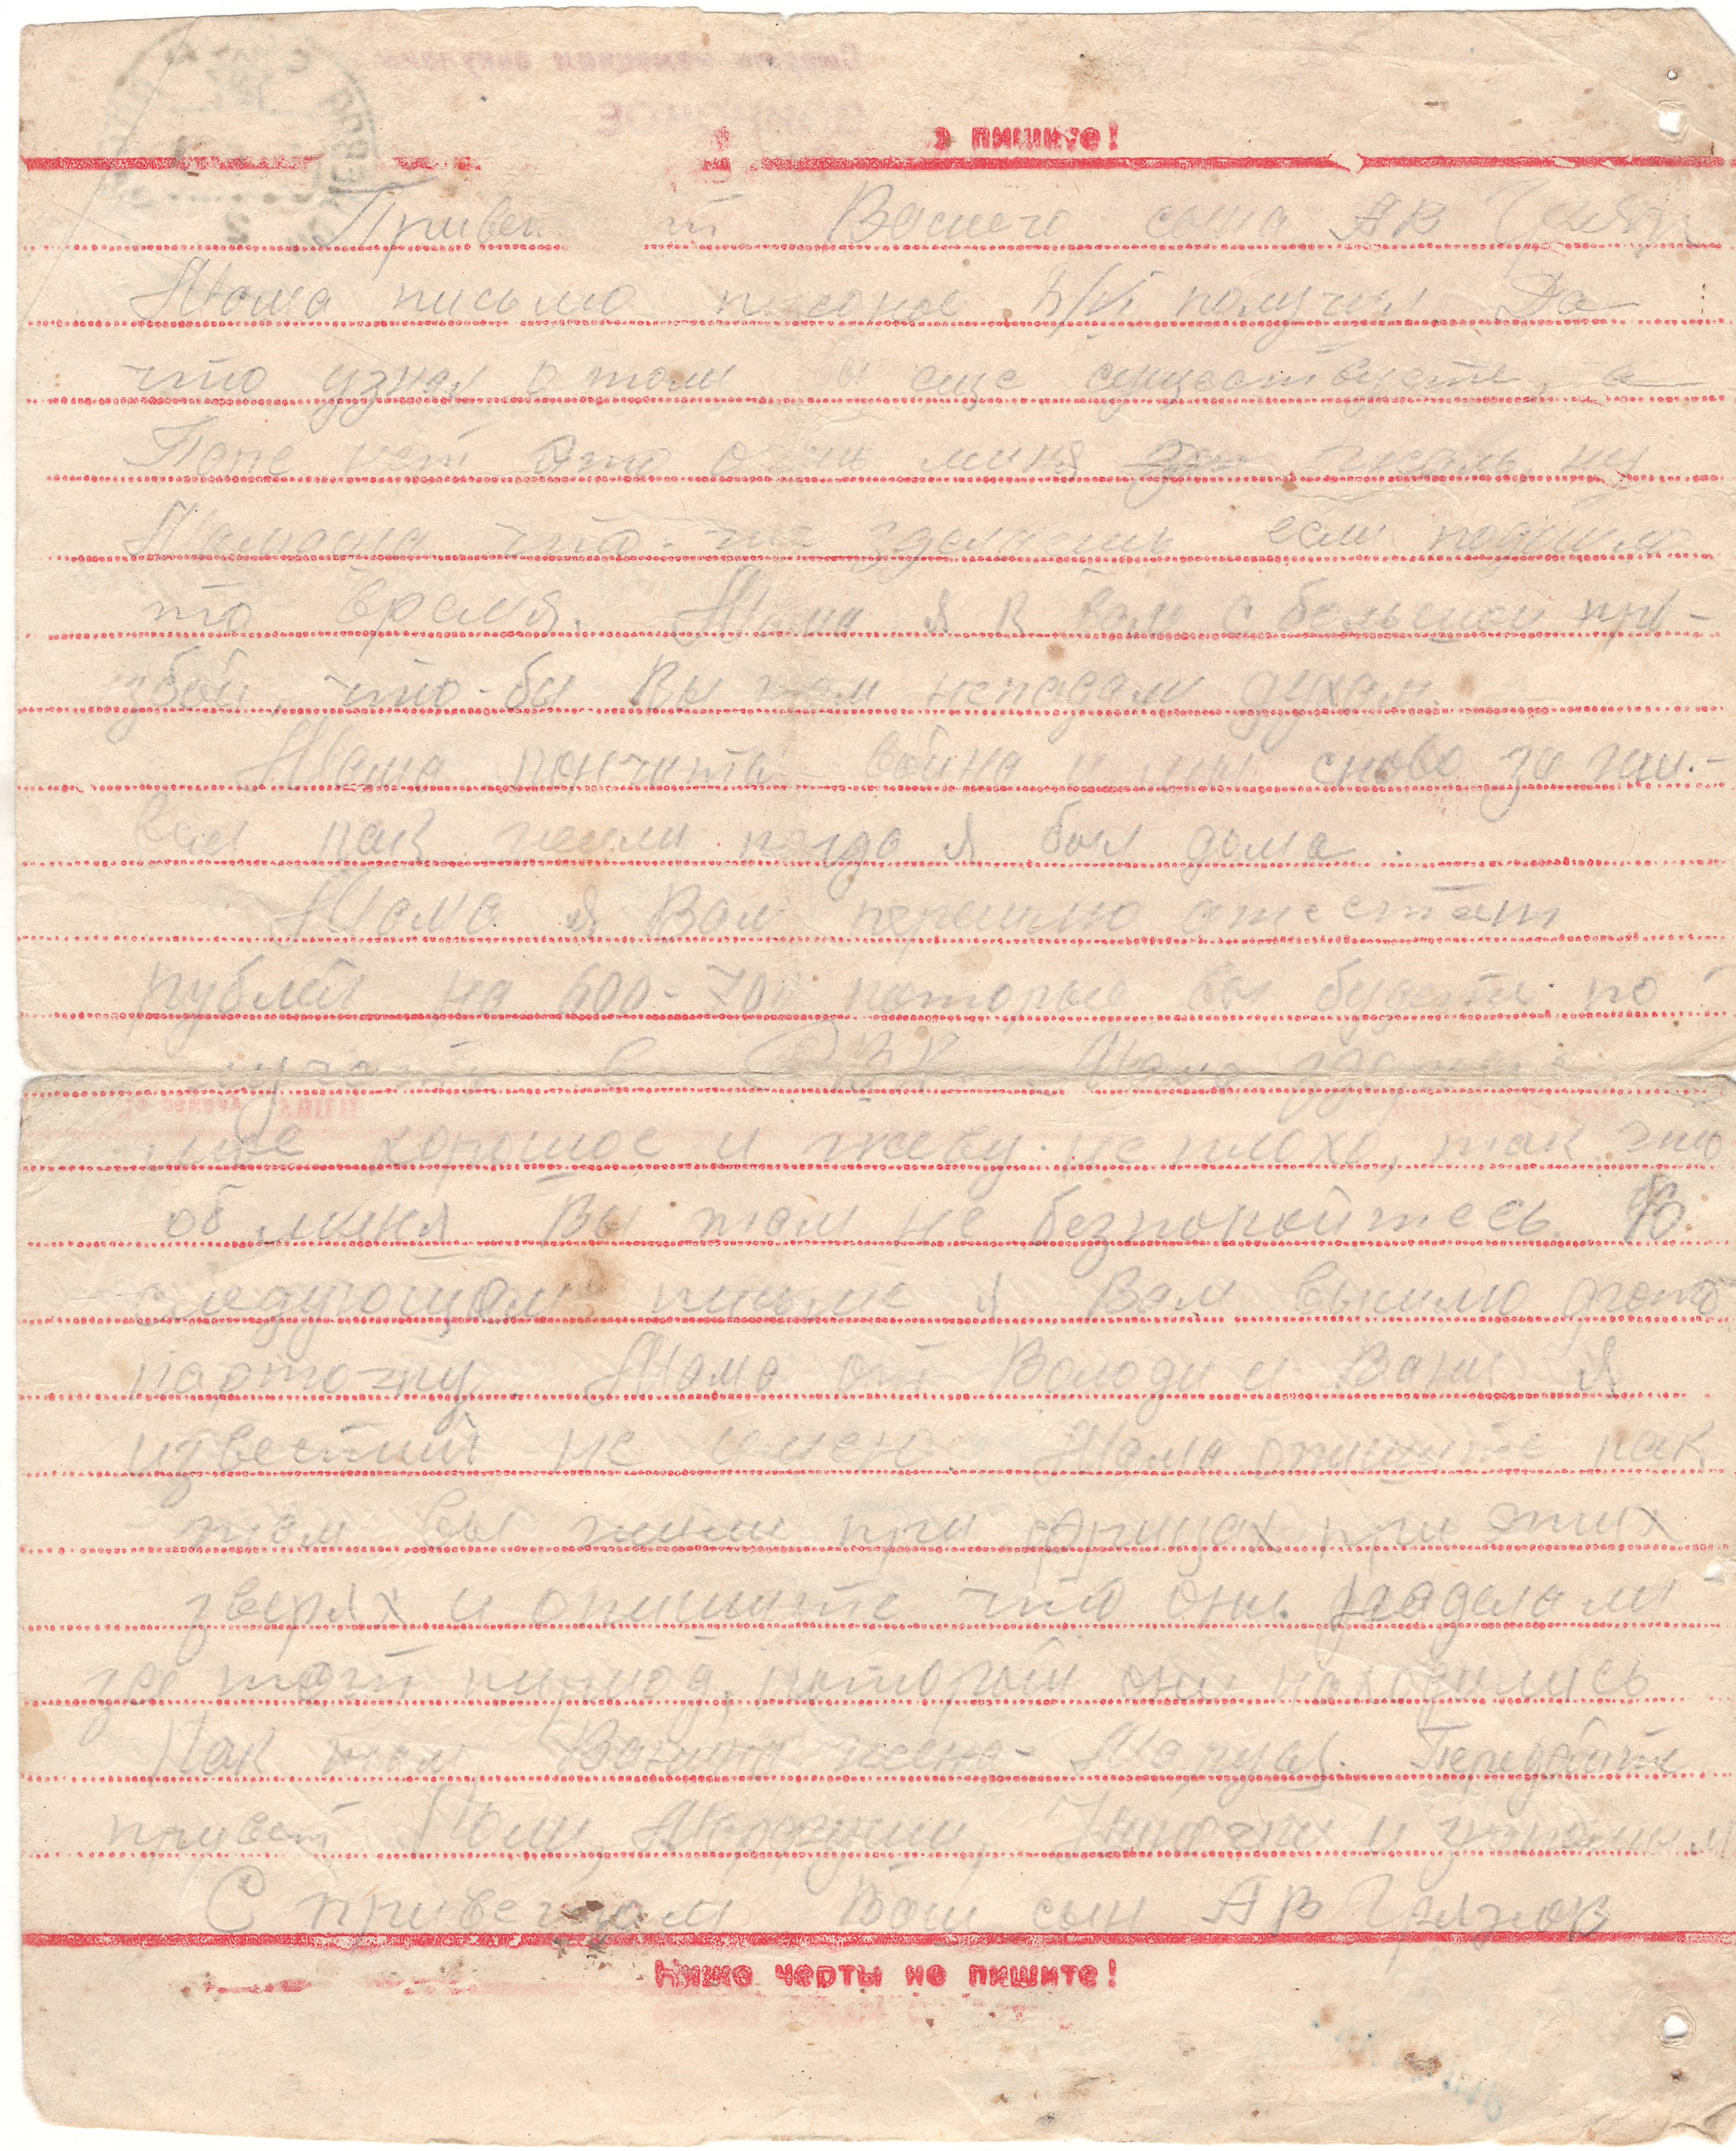 пишите!
Привет от Вашего сына АВ Грязн
Мама письмо писаное 5/VI получил. За
что узнал о том вы еще существуете, а
Папе нет это очень миня жаль, ну
Мамаша что-же зделаеш если подошло
то время. Мама я к вам с большой прь-
збой, что-бы Вы там непадали духам.
Мама кончится война и мы снова за жи-
вем как жили когда я был дома.
Мама я Вам перешлю атестат
рублей на 600-700 которые вы будете по
лучать в РВК. Мама здоровье
мое хорошое и живу не плохо, так что
об миня Вы там не безпокойтесь. Во
следующем письме я Вам вышлю фото
карточку. Мама от Володи и Вани я
известий не имею. Мама опишите как
там вы жили при фрицах при этих
зверях и опишите что они наделали
за тот период, который они находились
Как там Ванина жена- Маруся. Передайте
привет Поли, Марфуши, Ниночки и знакомым
С приветом Ваш сын АВ Грязнов
Ниже черты не пишите!